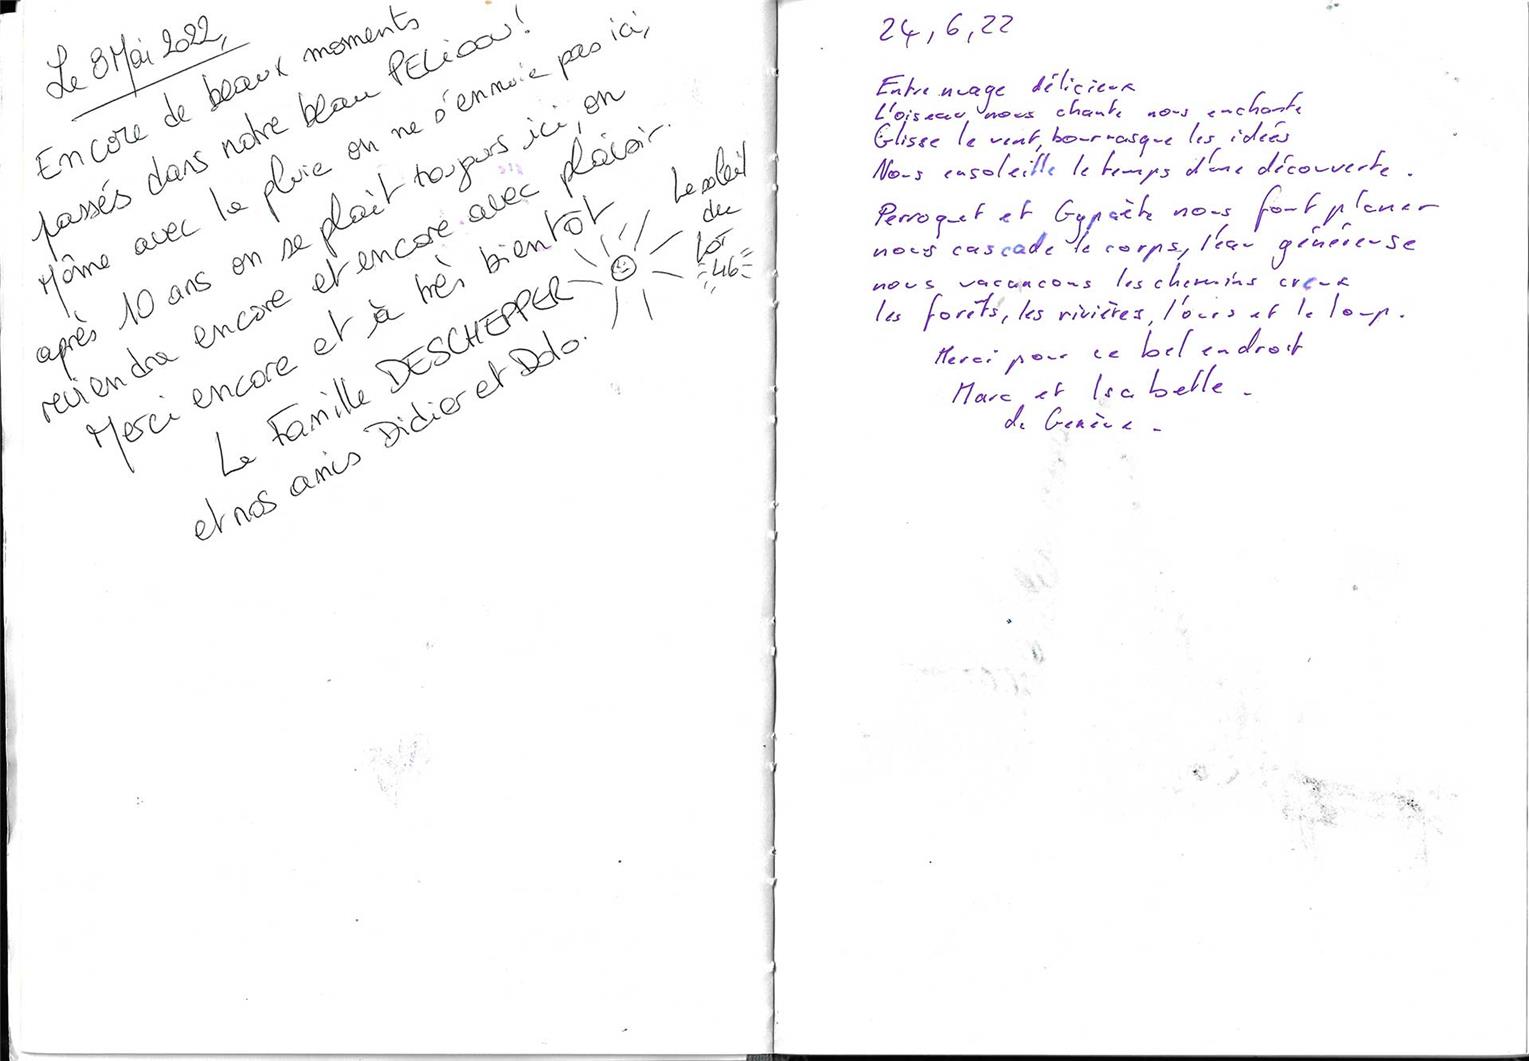 Le 8 Mai 2022,
Encore de beaux moments
passés dans notre beau PELICOU!
Même avec la pluie on ne s'ennuie pas ici,
après 10 ans on se plait toujours ici, on
reviendra encore et encore avec plaisir.
Merci encore et à très bientôt
La Famille DESCHEPPER
et nos amis Didier et Dolo.
Le soleil
du
Lot
46
24,6,22
Entre nuage délicieux
L'oiseau nous chante nous enchante
Glisse le vent, bourrasque les idées
Nous ensoleille le temps d'une découverte.
Perroquet et Gypaète nous font planer
nous cascade le corps, l'eau généreuse
nous vacancons les chemins creux
les forêts, les rivières, l'ours et le loup.
Merci pour ce bel endroit
Marc et Isabelle.
de Genève.